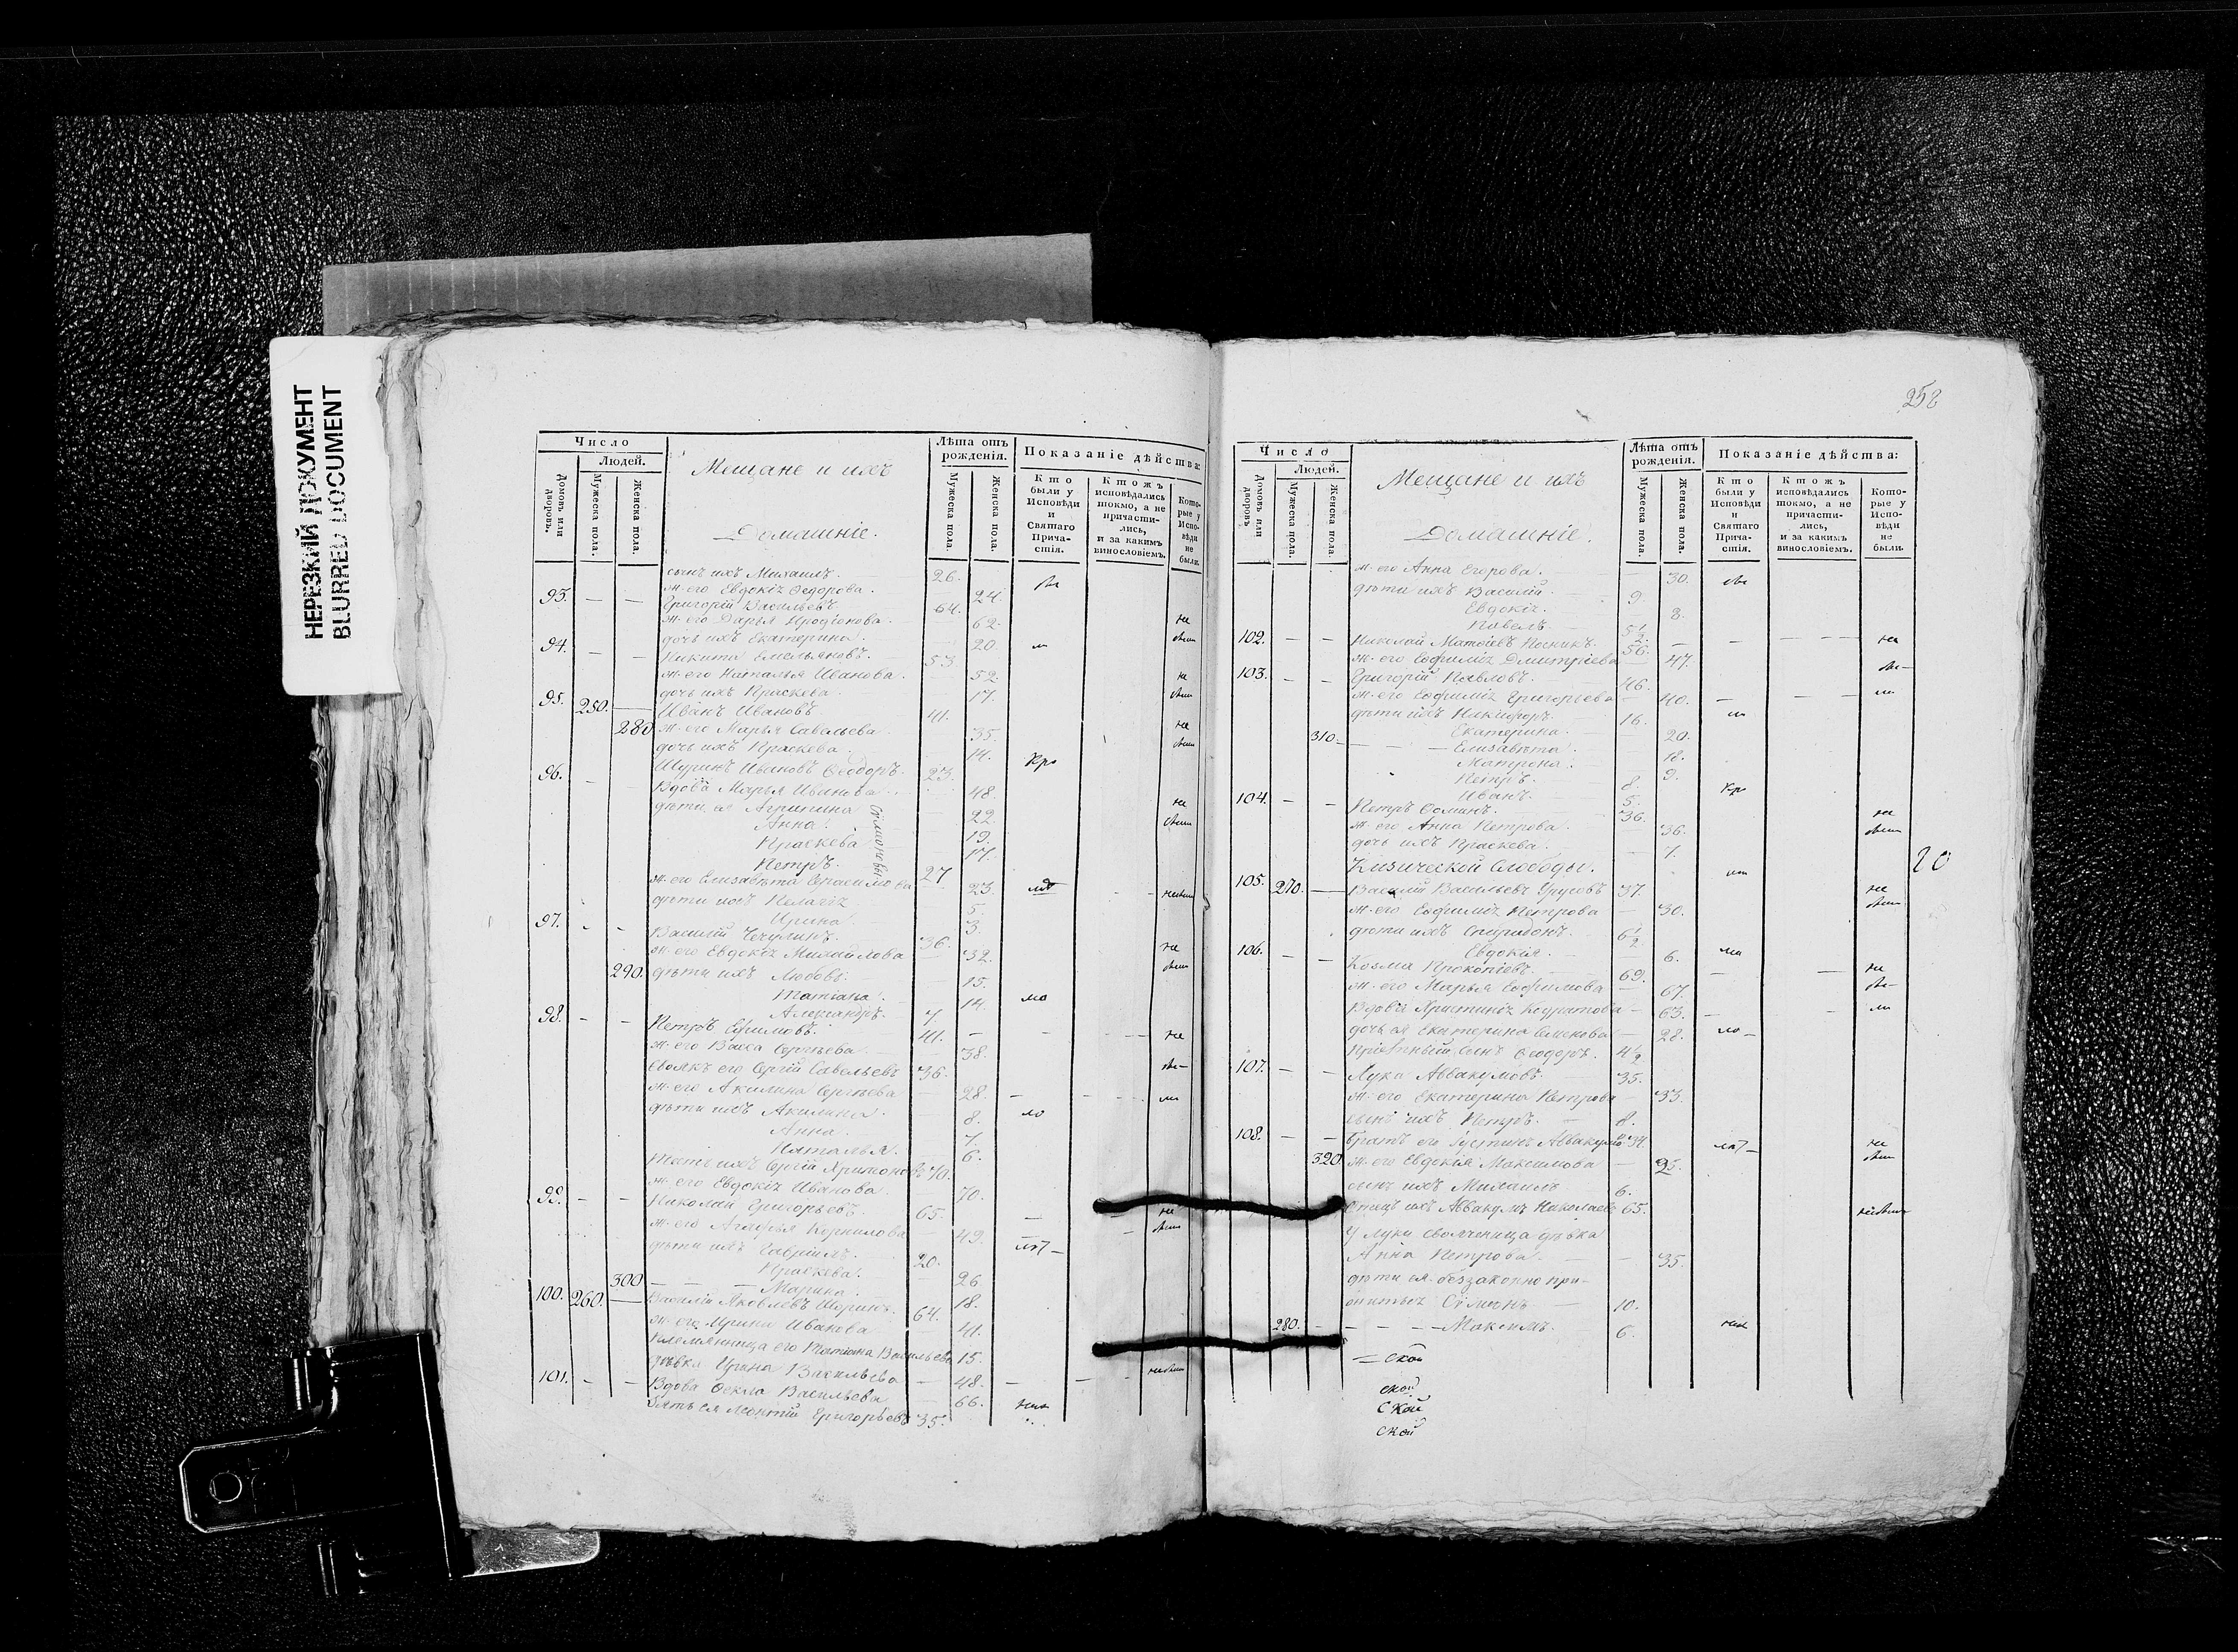 НЕРЕЗКИЙ ДОКУМЕНТ
BLURRED DOCUMENT
Число
Людей.
Домовъ или дворовъ.
Мужеска пола.
Женска пола.
Мещане и ихъ
Домашніе.
Лѣта отъ рожденія.
Мужеска пола.
Женска пола.
Показаніе дѣйства:
Кто были у Исповѣди и Святаго Причастія.
Ктожъ исповѣдались токмо, а не причастились, и за какимъ винословіемъ.
Которые у Исповѣди не были.
сынъ ихъ Михаилъ. 26.
ж. его Евдокіѧ Ѳедорова. 24.
93. Григорій Васильевъ 64.
ж. его Дарья Иродіонова. 62.
дочь ихъ Екатерина. 20.
94. Никита Емельяновъ. 53
ж. его Наталья Иванова. 52.
дочь ихъ Праскева. 17.
95. 250. Иванъ Ивановъ 41.
280 ж. его Марья Савельева 35.
дочь ихъ Праскева. 14.
Шуринъ Ивановъ Ѳеодоръ. 23.
96. Вдова Марья Иванова 48.
дѣти ея Агрипина 22.
Анна. 19.
Праскева 17.
Петръ. 27
ж. его Елизавѣта Герасимова 23.
дѣти ихъ Пелагіѧ 5.
Ирина. 3.
97. Василій Чечулинъ. 36.
ж. его Евдокіѧ Михайлова 32.
290. дѣти ихъ Любовь. 15.
Татіана. 14.
Александръ. 7.
98. Петръ Ефимовъ. 41.
ж. его Васса Сергѣева. 38.
Своякъ его Сергій Савельевъ 36.
ж. его Акилина Сергѣева 28.
дѣти ихъ Акилина. 8.
Анна. 7.
Наталья. 6.
ж. его Евдокіѧ Иванова. 70.
99. Николай Григорьевъ. 65.
ж. его Агафья Корнилова 49.
дѣти ихъ Гавріилъ. 20.
Праскева. 26
300 Марина. 18.
100. 260. Василій Яковлевъ 64.
ж. его Ирина Иванова 41.
племянница его Татіана Васильева 15.
дѣвка Ирина Васильева 48.
101. Вдова Ѳекла Васильева 66.
Зять ея Леонтій Григорьевъ 35.
258
Число
Людей.
Домовъ или дворовъ
Мужеска пола.
Женска пола.
Мещане и ихъ
Домашніе.
Лѣта отъ рожденія.
Мужеска пола.
Женска пола.
Показаніе дѣйства:
Кто были у Исповѣди и Святаго Причастія.
Ктожъ исповѣдались токмо, а не причастились, и за какимъ винословіемъ.
Которые у Исповѣди не были.
ж. его Анна Егорова. 30.
дѣти ихъ Василій. 9.
Евдокіѧ. 8.
Павелъ. 5½
102. Николай Матѳіевъ Носикъ. 56.
ж. его Евфиміѧ Дмитріева 47.
103. Григорій Павловъ. 46.
ж. его Евфиміѧ Григорьева 40.
дѣти ихъ Никифоръ. 16.
Екатерина. 20.
310. Елизавѣта. 18.
Матрона. 9.
Петръ. 8.
Иванъ. 5.
104. Петръ Осминъ. 36.
ж. его Анна Петрова. 36.
дочь ихъ Праскева. 7.
Кизической Слободы.
20
105. 270. Василій Васильевъ 37.
ж. его Евфиміѧ Петрова 30.
дѣти ихъ Спиридонъ. 6½
Евдокія. 6.
106. Козма Прокопіевъ. 69.
ж. его Марья Евфимова 67.
Вдова Христиніѧ Кодратова 63.
дочь ея Екатерина Семенова 28.
Пріемный сынъ Ѳеодоръ. 4½
107. Лука Аввакумовъ. 35.
ж. его Екатерина Петрова 33.
сынъ ихъ Петръ. 8.
108. Братъ его Іустинъ Аввакумовъ 34.
320. ж. его Евдокія Максимова 25.
сынъ ихъ Михаилъ 6.
Отецъ ихъ Аввакумъ Николаевъ 65.
У Луки свояченица дѣвка
Анна Петрова 35.
дѣти ея беззаконно при-
житыѧ Симіонъ 10.
280. Максимъ. 6.
ской
ской
ской
ской